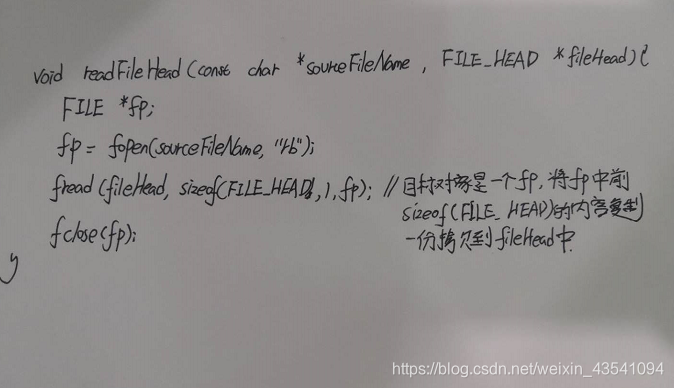 void readFileHead(const char *sourceFileName , FILE_HEAD *fileHead){
FILE *fp;
fp = fopen(sourceFileName, "rb");
fread(fileHead, sizeof(FILE_HEAD), 1, fp); //目标对象是一个fp,将fp中前
sizeof(FILE_HEAD)的内容复制
一份拷贝到fileHead中
fclose(fp);
}
https://blog.csdn.net/weixin_43541094